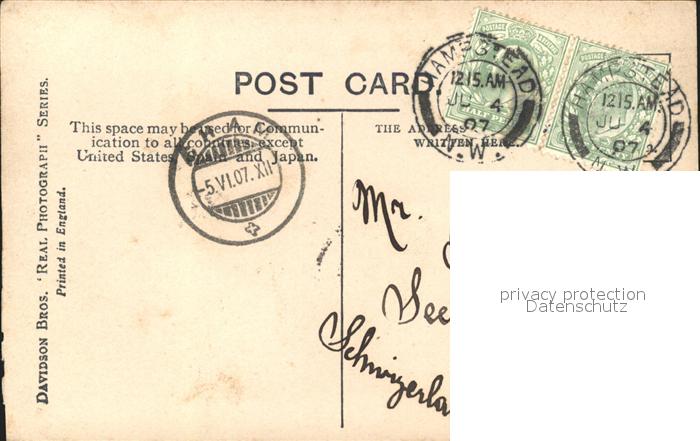 POST CARD.
This space may be used for Commun-
ication to all countries, except
United States, Spain and Japan.
THE ADDRESS
WRITTEN HERE.
DAVIDSON BROS. "REAL PHOTOGRAPH" SERIES.
Printed in England.
HAMPSTEAD
12 15.AM
JU 4
07
N.W.
HAMPSTEAD
12 15.AM
JU 4
07
N.W.
-5.VI.07.XII-
Mr.
See
Schwizerla
privacy protection
Datenschutz